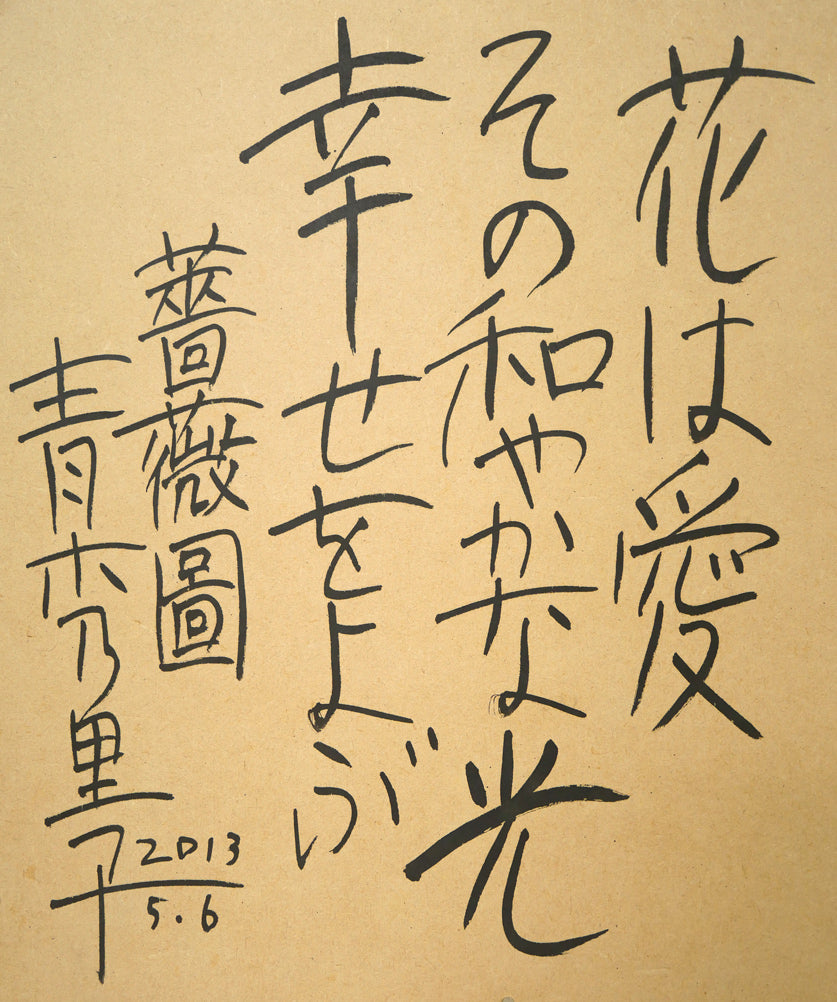 花は愛
その和やかな光
幸せをよぶ
薔薇圖
青木乃里子
2013
5.6